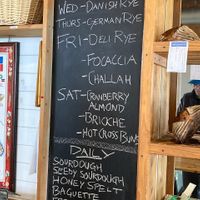 WED-DANISH RYE
THURS-GERMAN RYE
FRI-DELI RYE
-FOCACCIA
-CHALLAH
SAT-CRANBERRY
ALMOND
-BRIOCHE
-HOT CROSS BUNS
DAILY
SOURDOUGH
SEEDY SOURDOUGH
HONEY SPELT
BAGUETTE